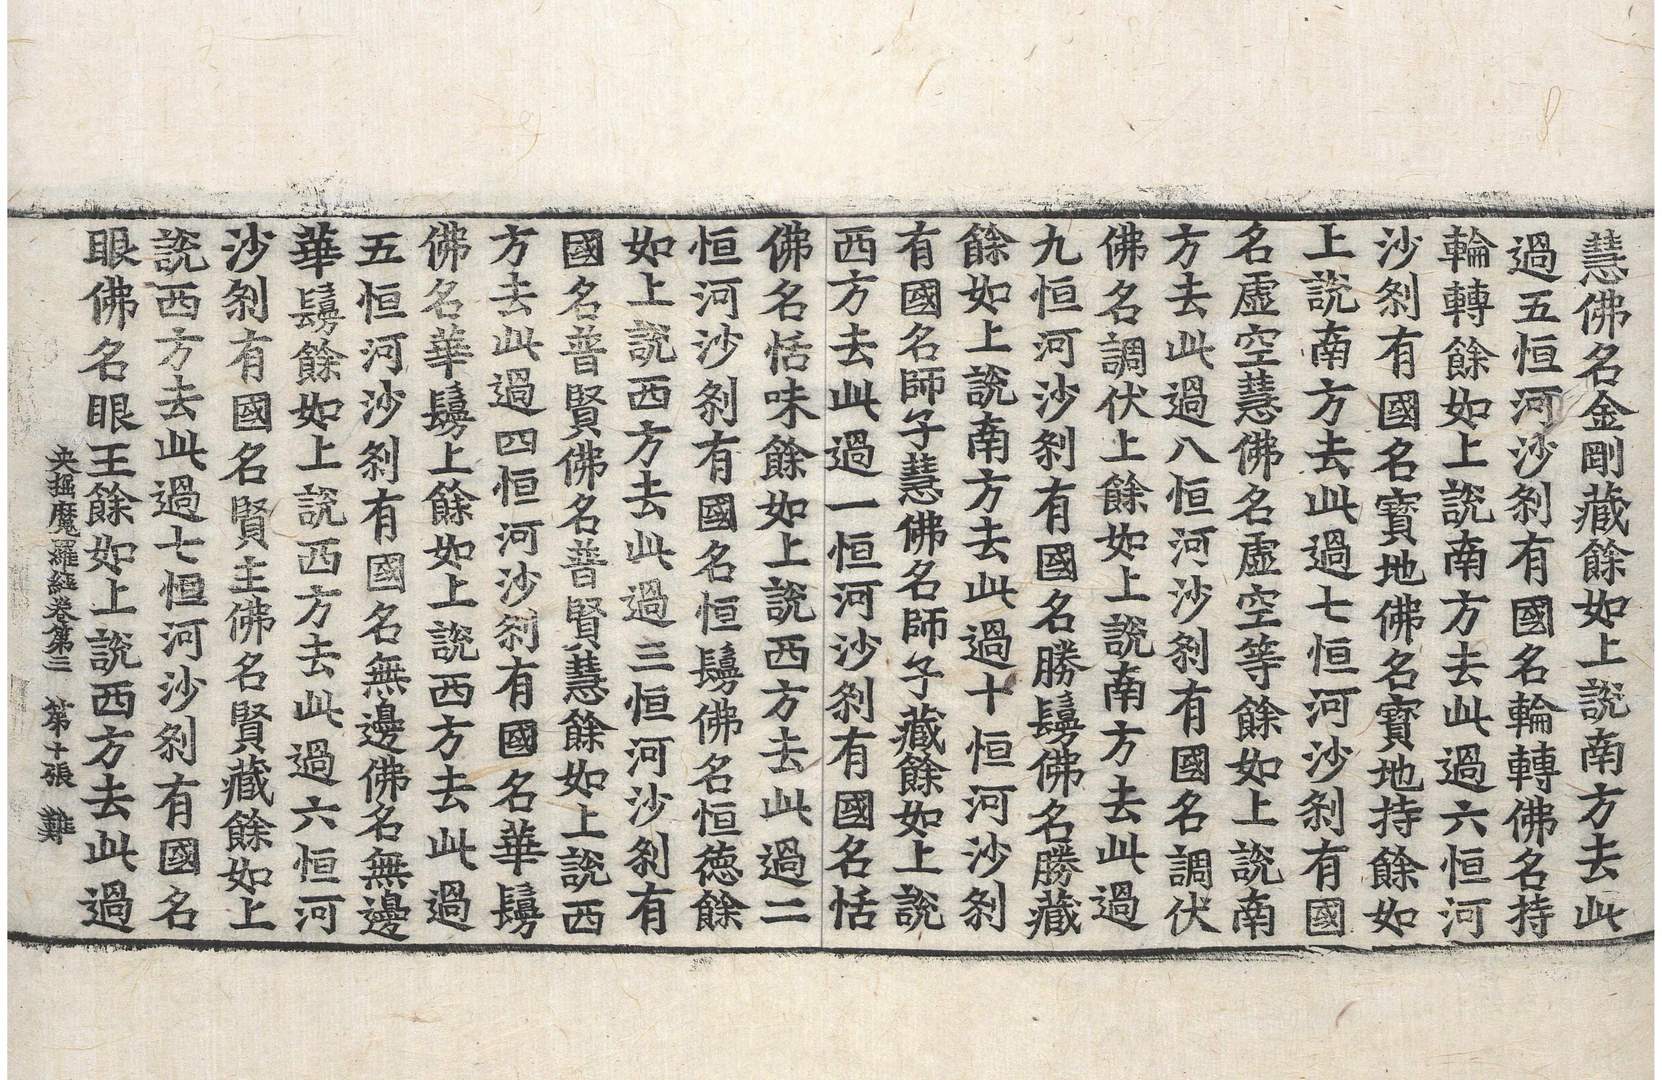 慧佛名金剛藏餘如上說南方去此
過五恒河沙剎有國名輪轉佛名持
輪轉餘如上說南方去此過六恒河
沙剎有國名寶地佛名寶地持餘如
上說南方去此過七恒河沙剎有國
名虛空慧佛名虛空等餘如上說南
方去此過八恒河沙剎有國名調伏
佛名調伏上餘如上說南方去此過
九恒河沙剎有國名勝鬘佛名勝藏
餘如上說南方去此過十恒河沙剎
有國名師子慧佛名師子藏餘如上說
西方去此過一恒河沙剎有國名恬
佛名恬味餘如上說西方去此過二
恒河沙剎有國名恒鬘佛名恒德餘
如上說西方去此過三恒河沙剎有
國名普賢佛名普賢慧餘如上說西
方去此過四恒河沙剎有國名華鬘
佛名華鬘上餘如上說西方去此過
五恒河沙剎有國名無邊佛名無邊
華鬘餘如上說西方去此過六恒河
沙剎有國名賢主佛名賢藏餘如上
說西方去此過七恒河沙剎有國名
眼佛名眼王餘如上說西方去此過
央掘魔羅經卷第三　第十張　難